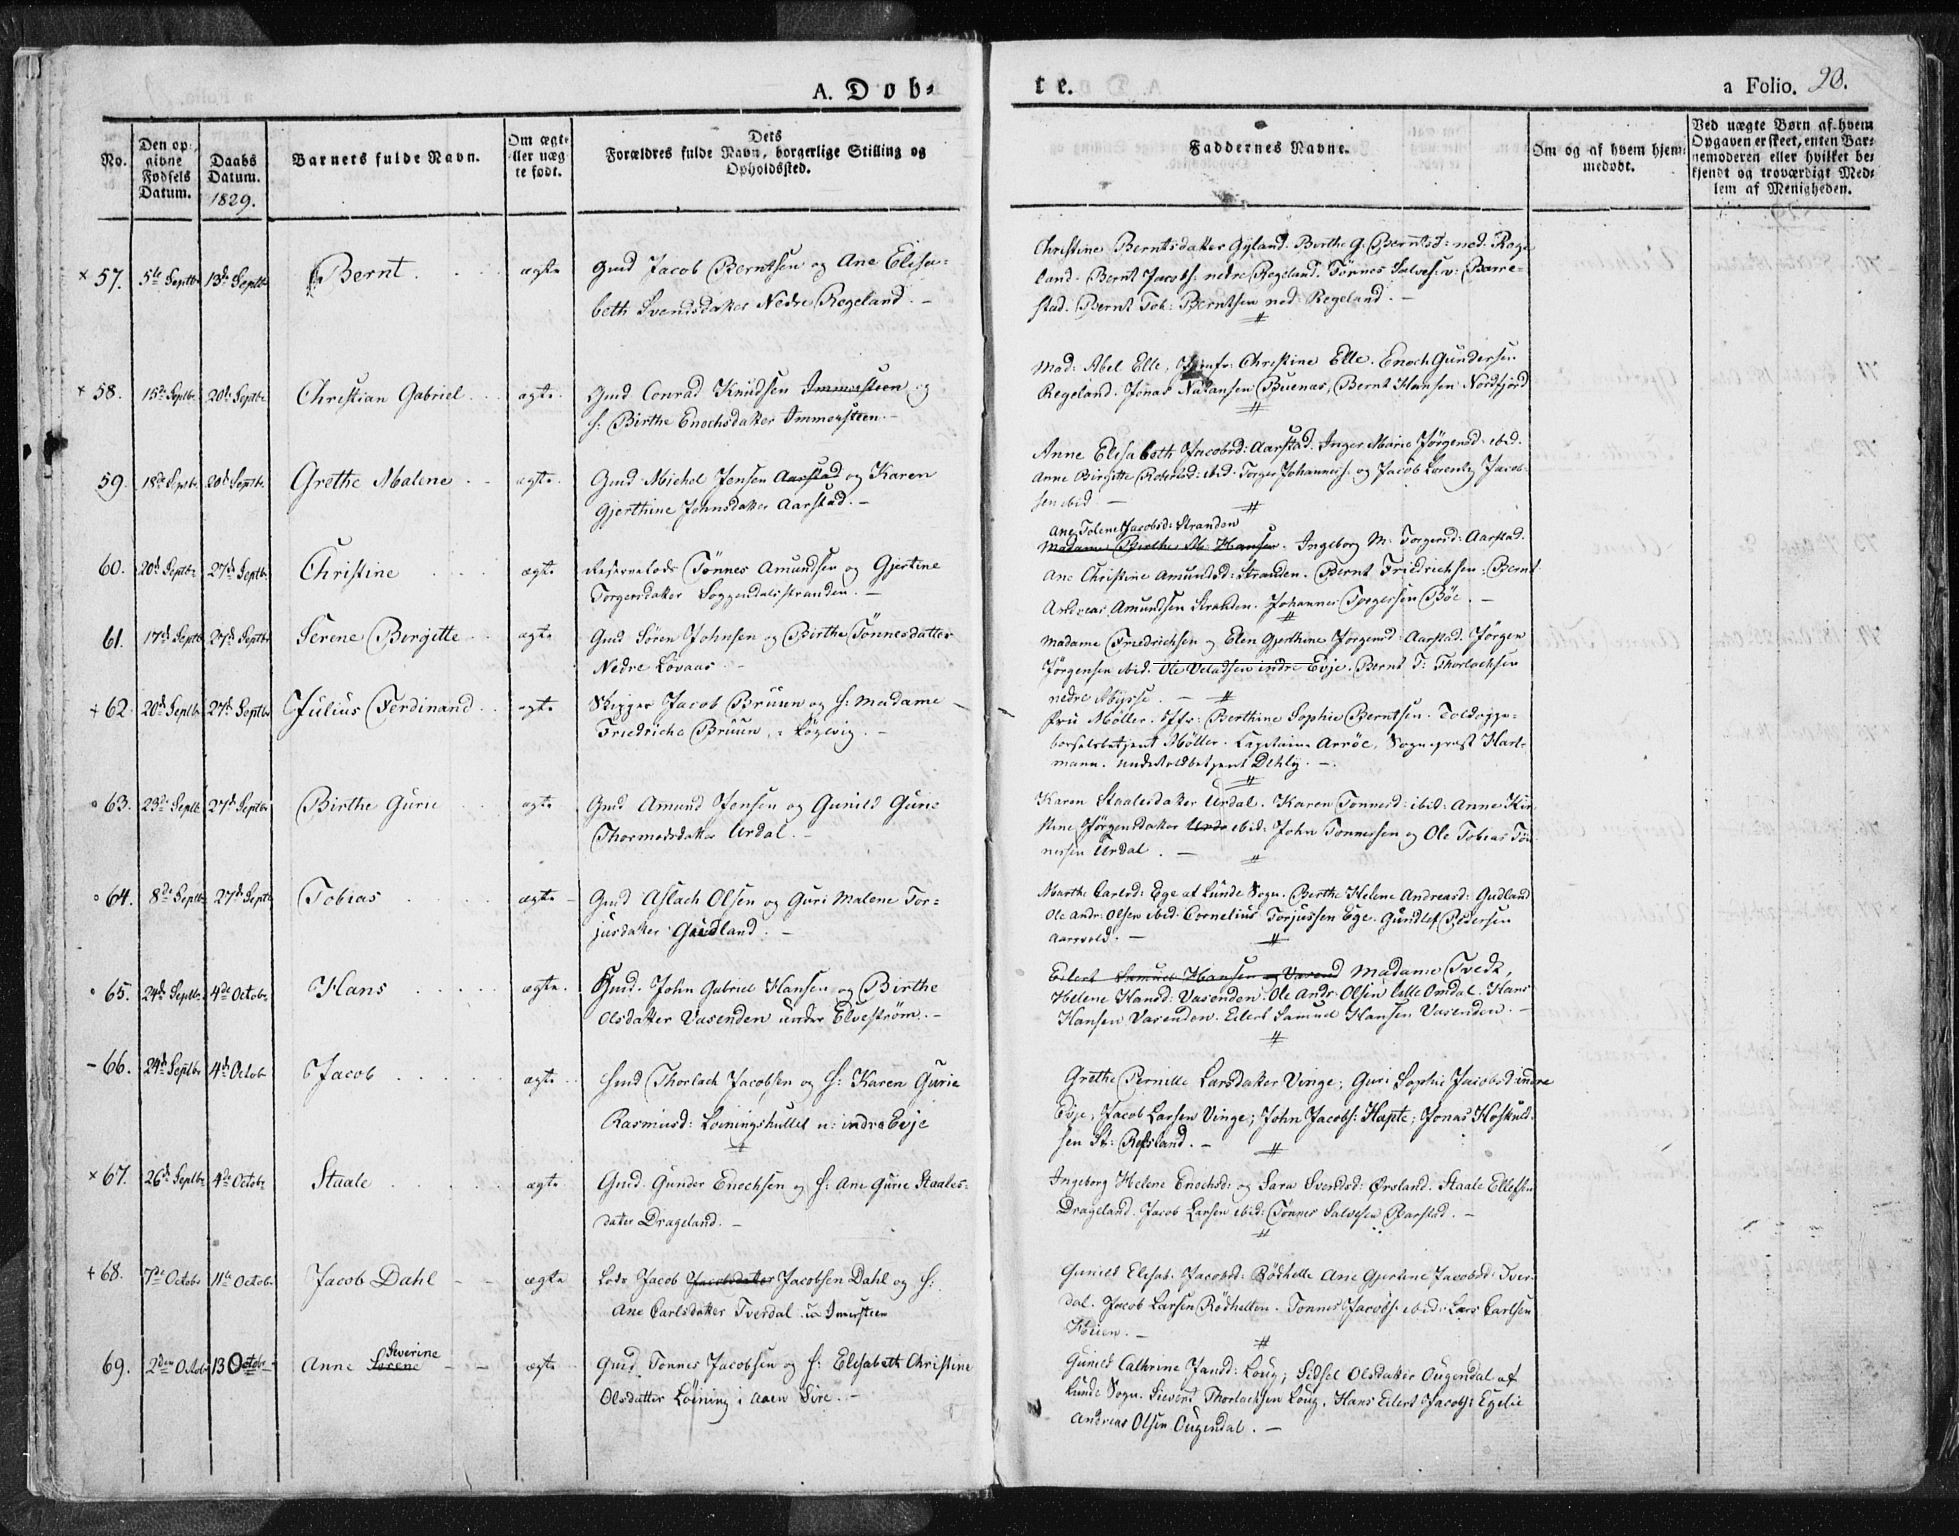 A. Døb-
te.
a Folio. 20.
No.
Den op-
givne
Fødsels
Datum.
Daabs
Datum.
1829.
Barnets fulde Navn.
Om ægte
eller uæg
te født.
Dets
Forældres fulde Navn, borgerlige Stilling og
Opholdssted.
Faddernes Navne.
Om og af hvem hjem-
medøbt.
Ved uægte Børn af hvem
Opgaven er skeet, enten Bar-
nemoderen eller hvilket be-
kjendt og troværdigt Med-
lem af Menigheden.
× 57. 5te Septbr 13de Septbr Bernt ægte Gmd Jacob Berntsen og Ane Elisa-
beth Svendsdatter Nedre Regeland. –
Christine Berntsdatter Gyland. Berthe G. Berntsd: ned. Rege
land. Bernt Jacobs. nedre Regeland. Tønnes Salvesen: Barre-
stad. Bernt Tob: Berntsen ned: Regeland. –
× 58. 15de Septbr 20de Septbr Christian Gabriel ægte Gmd Conrad Knudsen Immersteen og
h: Birthe Enochsdatter Immersteen. –
Mad: Abel Elle, Jomfr: Christine Elle. Enoch Gundersen
Regeland. Jonas Natansen Buenas, Bernt Hansen Nordfjord
59. 18de Septbr 20de Septbr Grethe Malene ægte Gmd Michel Jensen Aarstad og Karen
Gjerthine Johnsdatter Aarstad. –
Anne Elisabeth Jacobsd: Aarstad. Inger Marie Jørgensd: ibid.
Anne Birgitte Robersd: ibid: Torger Johannes. og Jacob Lorentz Jacob-
sen ibid –
60. 20de Septbr 27de Septbr Christine ægte Reservelods Tønnes Amundsen og Gjertine
Torgersdatter Soggendalsstranden. –
Ane Tolene Jacobsd: Stranden
Madame Berthe M: Hansen. Ingeborg M: Torgersd: Aarstad.
Ane Christine Amundsd: Stranden. Bernt Friedrichsen. Bernt
Andreas Amundsen Stranden. Johannes Torgersen Bøe. –
61. 17de Septbr 27de Septbr Serene Birgitte ægte Gmd Søren Johnsen og Birthe Tønnesdatter
Nedre Lovaas –
Madame Friedrichsen og Elen Gjerthine Jørgensd: Aarstad. Jørgen
Jørgensen ibid. Ole Veladsen indre Evje. Bernt T: Thorlachsen
nedre Mysse. –
+ 62. 20de Septbr 27de Septbr Julius Ferdinand ægte Skipper Jacob Bruun og h: Madame
Friedriche Bruun, i Rægevig. –
Fru Møller. Jfr: Berthine Sophie Berntsen. Toldoppe-
børselsbetjent Møller. Capitaine Arrøe, Sognepræst Hart-
mann. undertoldbetjent Dehly. –
∘ 63. 23de Septbr 27de Septbr Birthe Gurie ægte Gmd Amund Jensen og Gunild Gurie
Thormodsdatter Urdal. –
Karen Staalesdatter Urdal. Karen Tønnesd: ibid: Anne Kir-
stine Jørgensdatter Urda ibid: John Tønnesen og Ole Tobias Tøn
nesen Urdal. –
∘ 64. 8de Septbr 27de Septb Tobias ægte – Gmd Aslach Olsen og Guri Malene Tor-
jusdatter Gudland. –
Marthe Carlsd: Ege af Lunde Sogn. Berthe Helene Andreasd: Gudland
Ole Andr: Olsen ibid: Cornelius Torjussen Ege. Gundlef Pedersen
Aarrvold. –
∘ 65. 24de Septbr. 4de Octobr. Hans ægte. Gmd. John Gabriel Hansen og Birthe
Olsdatter Vasenden under Elvestrøm. –
Eilert Samuel Hansen Vasend Madame Tvedt,
Helene Hansd: Vasenden. Ole Andr: Olsen Lille Omdal. Hans
Hansen Vasenden. Eilert Samuel Hansen Vasenden. –
– 66. 24de Septbr 4de Octobr Jacob ægte. Hmd Thorlach Jacobsen og h: Karen Gurie
Rasmusd: Løiningshullet u: indre Evje
Grethe Pernille Larsdatter Vinge; Guri Sophie Jacobsd: indre
Evje, Jacob Larsen Vinge; John Jacobs: Hapte; Jonas Hoskuld-
sen St: Refsland. –
× 67. 26de Septbr 4de Octobr Staale ægte Gmd. Gunder Enochsen og h: Ane Gurie Staales-
dater Drageland. –
Ingeborg Helene Enochsd: og Sara Svendsd: Ørsland. Staale Ellefsen
Drageland. Jacob Larsen ibid: Tønnes Salvesen Barstad. –
+ 68. 7de Octobr 11te Octobr Jacob Dahl ægte Lods Jacob Jacobsdatter Jacobsen Dahl og h:
Ane Carlsdatter Tverdal. u: Imersteen
Gunild Elisab. Jacobsd: Rødhelle Ane Gjertine Jacobsd: Tver-
dal. Jacob Larsen Rødhelten. Tønnes Jacobs: ibid: Lars Carlsen
Høien. –
69. 2den Octobr 13 Octobr Anne Serene Siverine ægte Gmd Tønnes Jacobsen og h: Elisabeth Christine
Olsdatter Løining i Aaen Sire. –
Gunild Cathrine Jansd: Loug; Sidsel Olsdatter Ougendal af
Lunde Sogn. Sievert Thorlachsen Loug. Hans Eilert Jacobs: Egelie
Andreas Olsen Ougendal. –